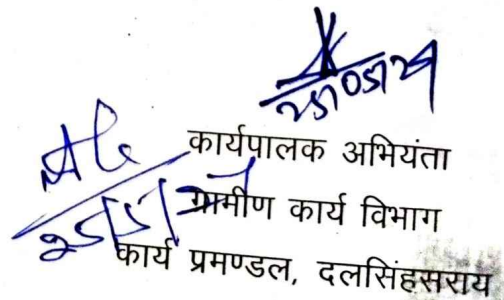 25/05/24
कार्यपालक अभियंता
ग्रामीण कार्य विभाग
25/5/
कार्य प्रमण्डल, दलसिंहसराय